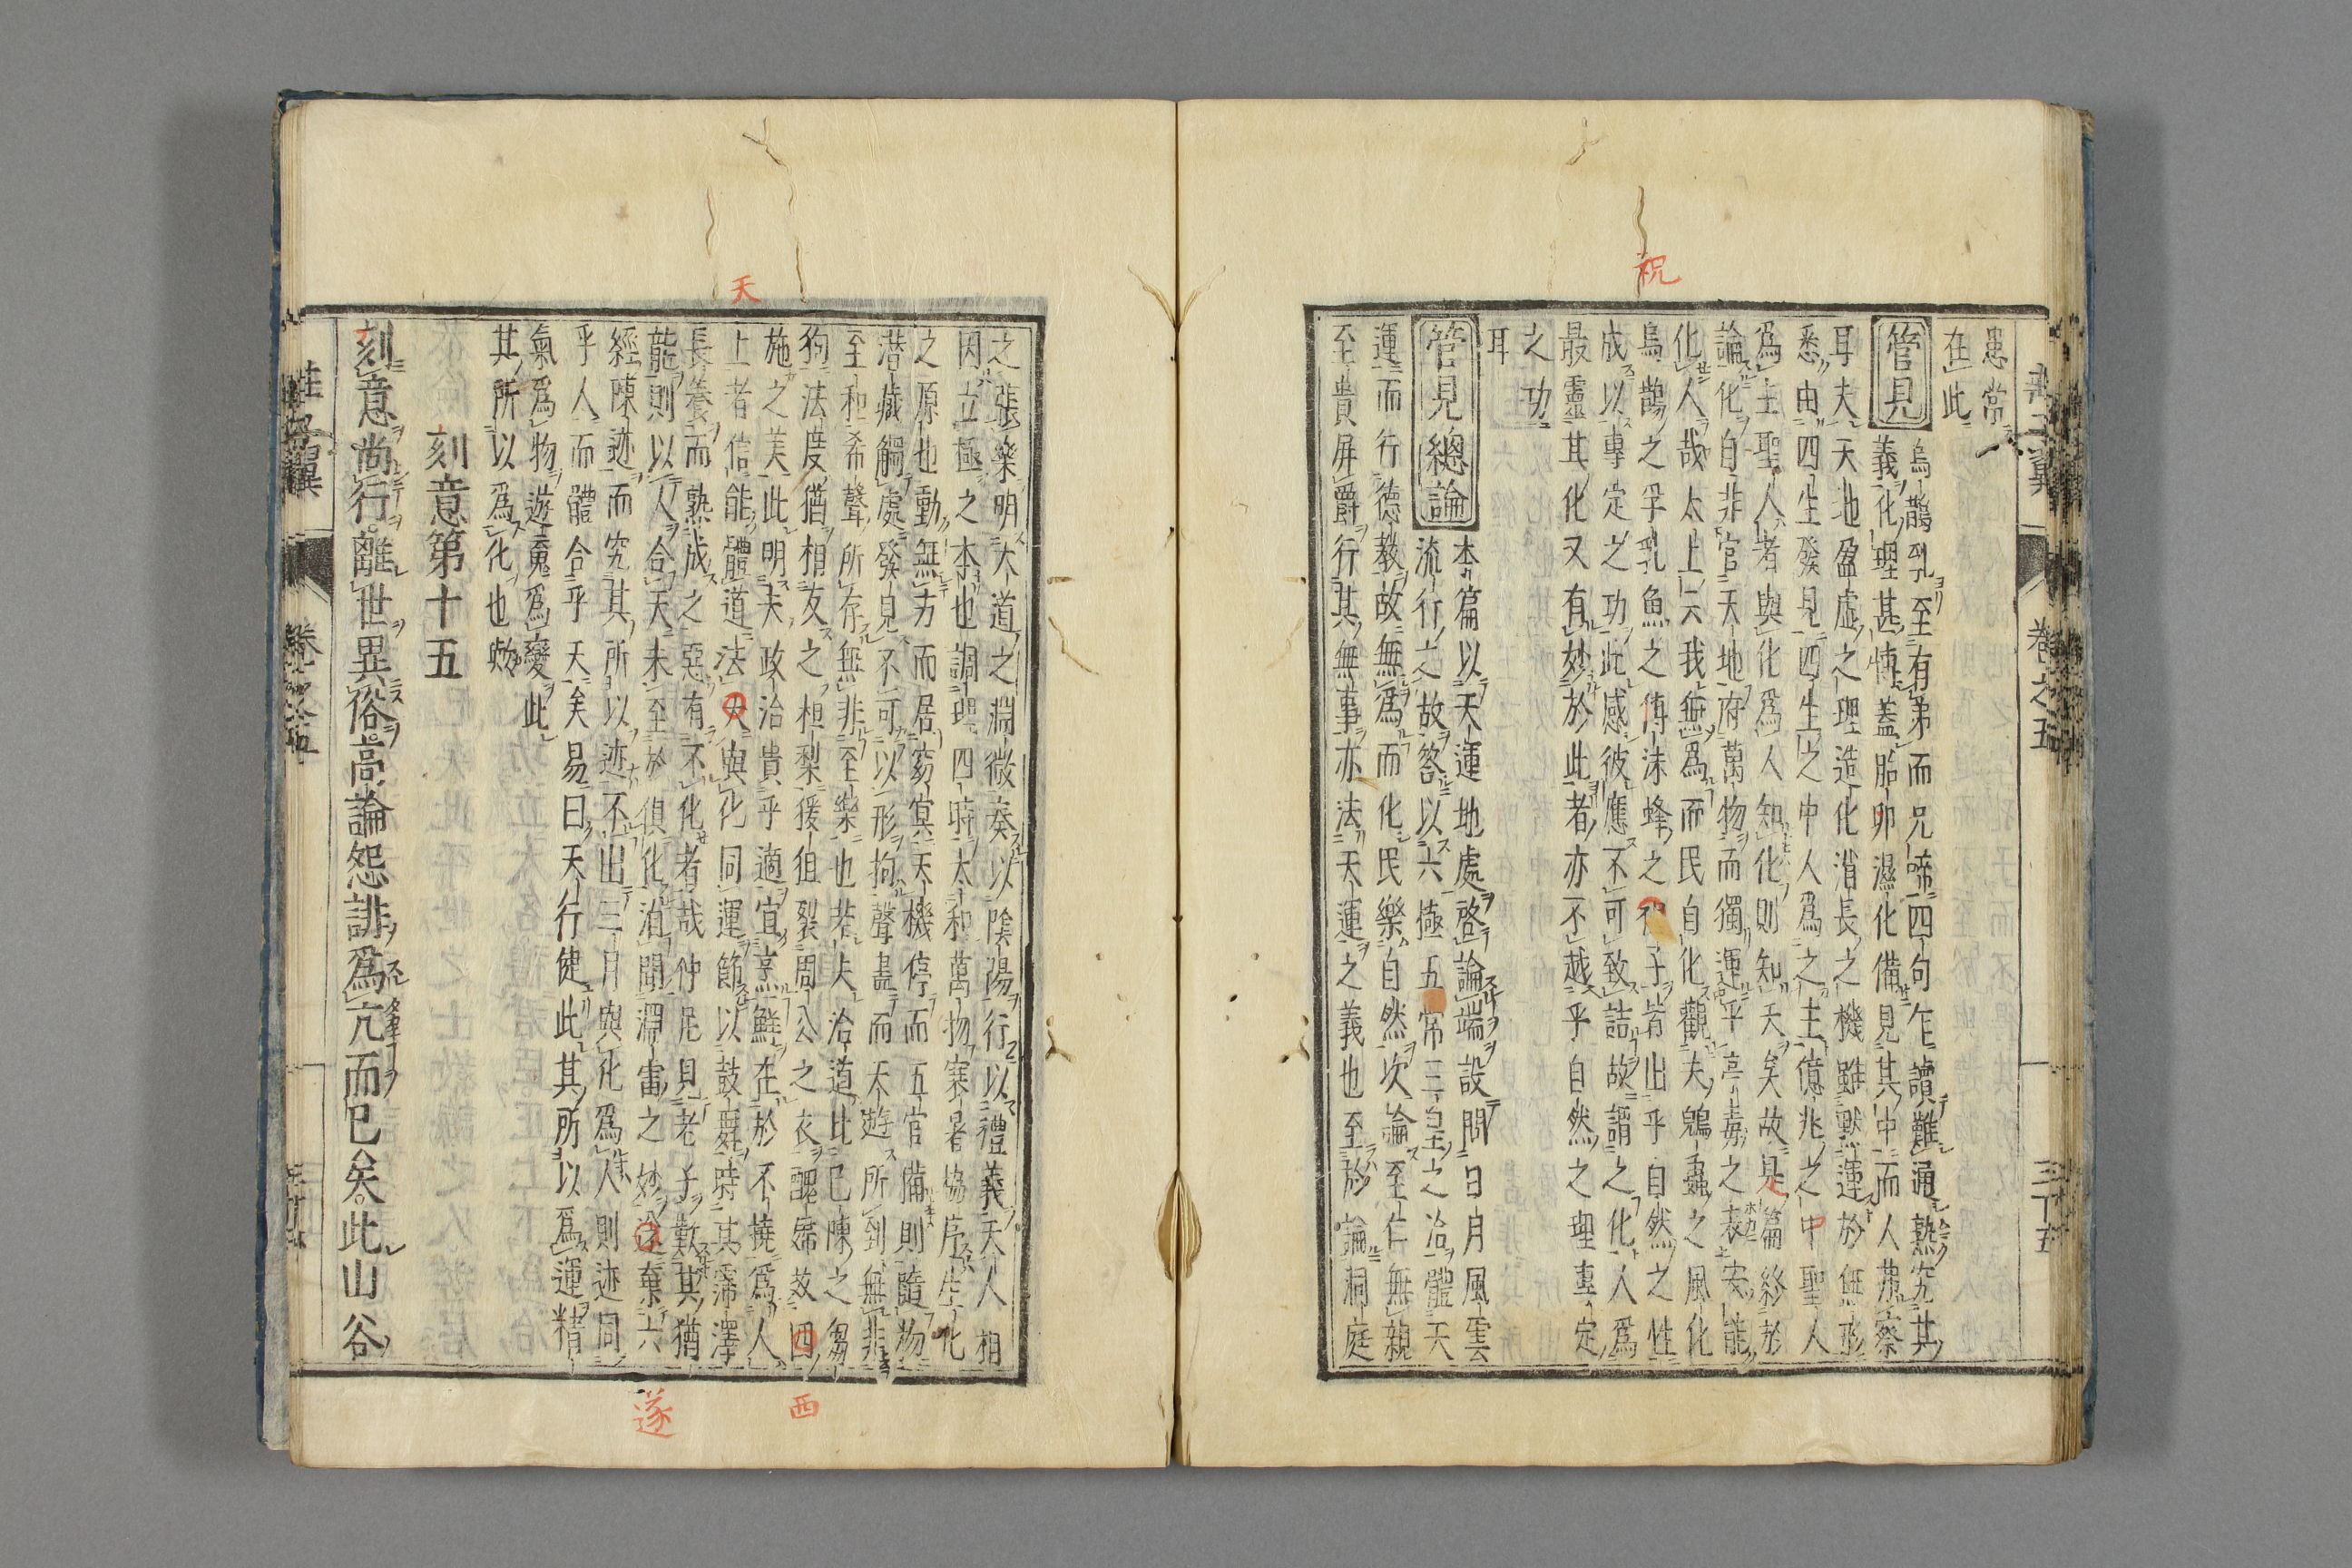 祝
患常
在此
管見
烏鵲孔至有弟而兄啼四句乍讀難通熟究其
義化理甚情蓋胎卵濕化備見其中而人弗察
耳夫天地盈虛之理造化消長之機雖默運於無形
悉由四生發見四生之中人為之主億兆之中聖人
為主聖人者與化為人知化則知天矣故是篇終於
論化自非官天地府萬物而獨運乎亭毒之表安能
化人哉太上云我無為而民自化觀夫鶂蟲之風化
烏鵲之孚乳魚之傳沫蜂之祝子皆出乎自然之性
成以專定之功此感彼應不可致詰故謂之化人為
最靈其化又有妙於此者亦不越乎自然之理專定
之功
耳
管見總論
本篇以天運地處啓論端設問日月風雲
流行之故答以六極五常三皇之治體天
運而行德教故無為而化民樂自然次論至仁無親
至貴屏爵行其無事亦法天運之義也至於論洞庭
莊子翼 卷之五 三十五
天
之張樂明大道之淵微奏以陰陽行以禮義天人相
因立極之本也調理四時太和萬物寒暑協序生化
之原也動無方而居窈冥天機停而五官備則隨物
潜藏觸處發見不可以形拘聲盡而天遊所到無非
至和希聲所存無非至樂也若夫治道比已陳之芻
狗法度猶相友之柤梨猨狙裂周公之衣醜婦效四
施之美此明夫政治貴乎適宜烹鮮在於不撓為人
上者信能體道法大與化同運節以鼓舞時其霈澤
長養而熟成之惡有不化者哉仲尼見老子歎其猶
龍則以人合天未至於俱化洎聞淵雷之妙迩棄六
經陳迹而究其所以迹不出三月與化為人則迹同
乎人而體合乎天矣易曰天行健此其所以為運精
氣為物遊魂為變此
其所以為化也歟
刻意第十五
刻意尚行離世異俗高論怨誹為亢而已矣此山谷
莊子翼 卷之五
西
遂